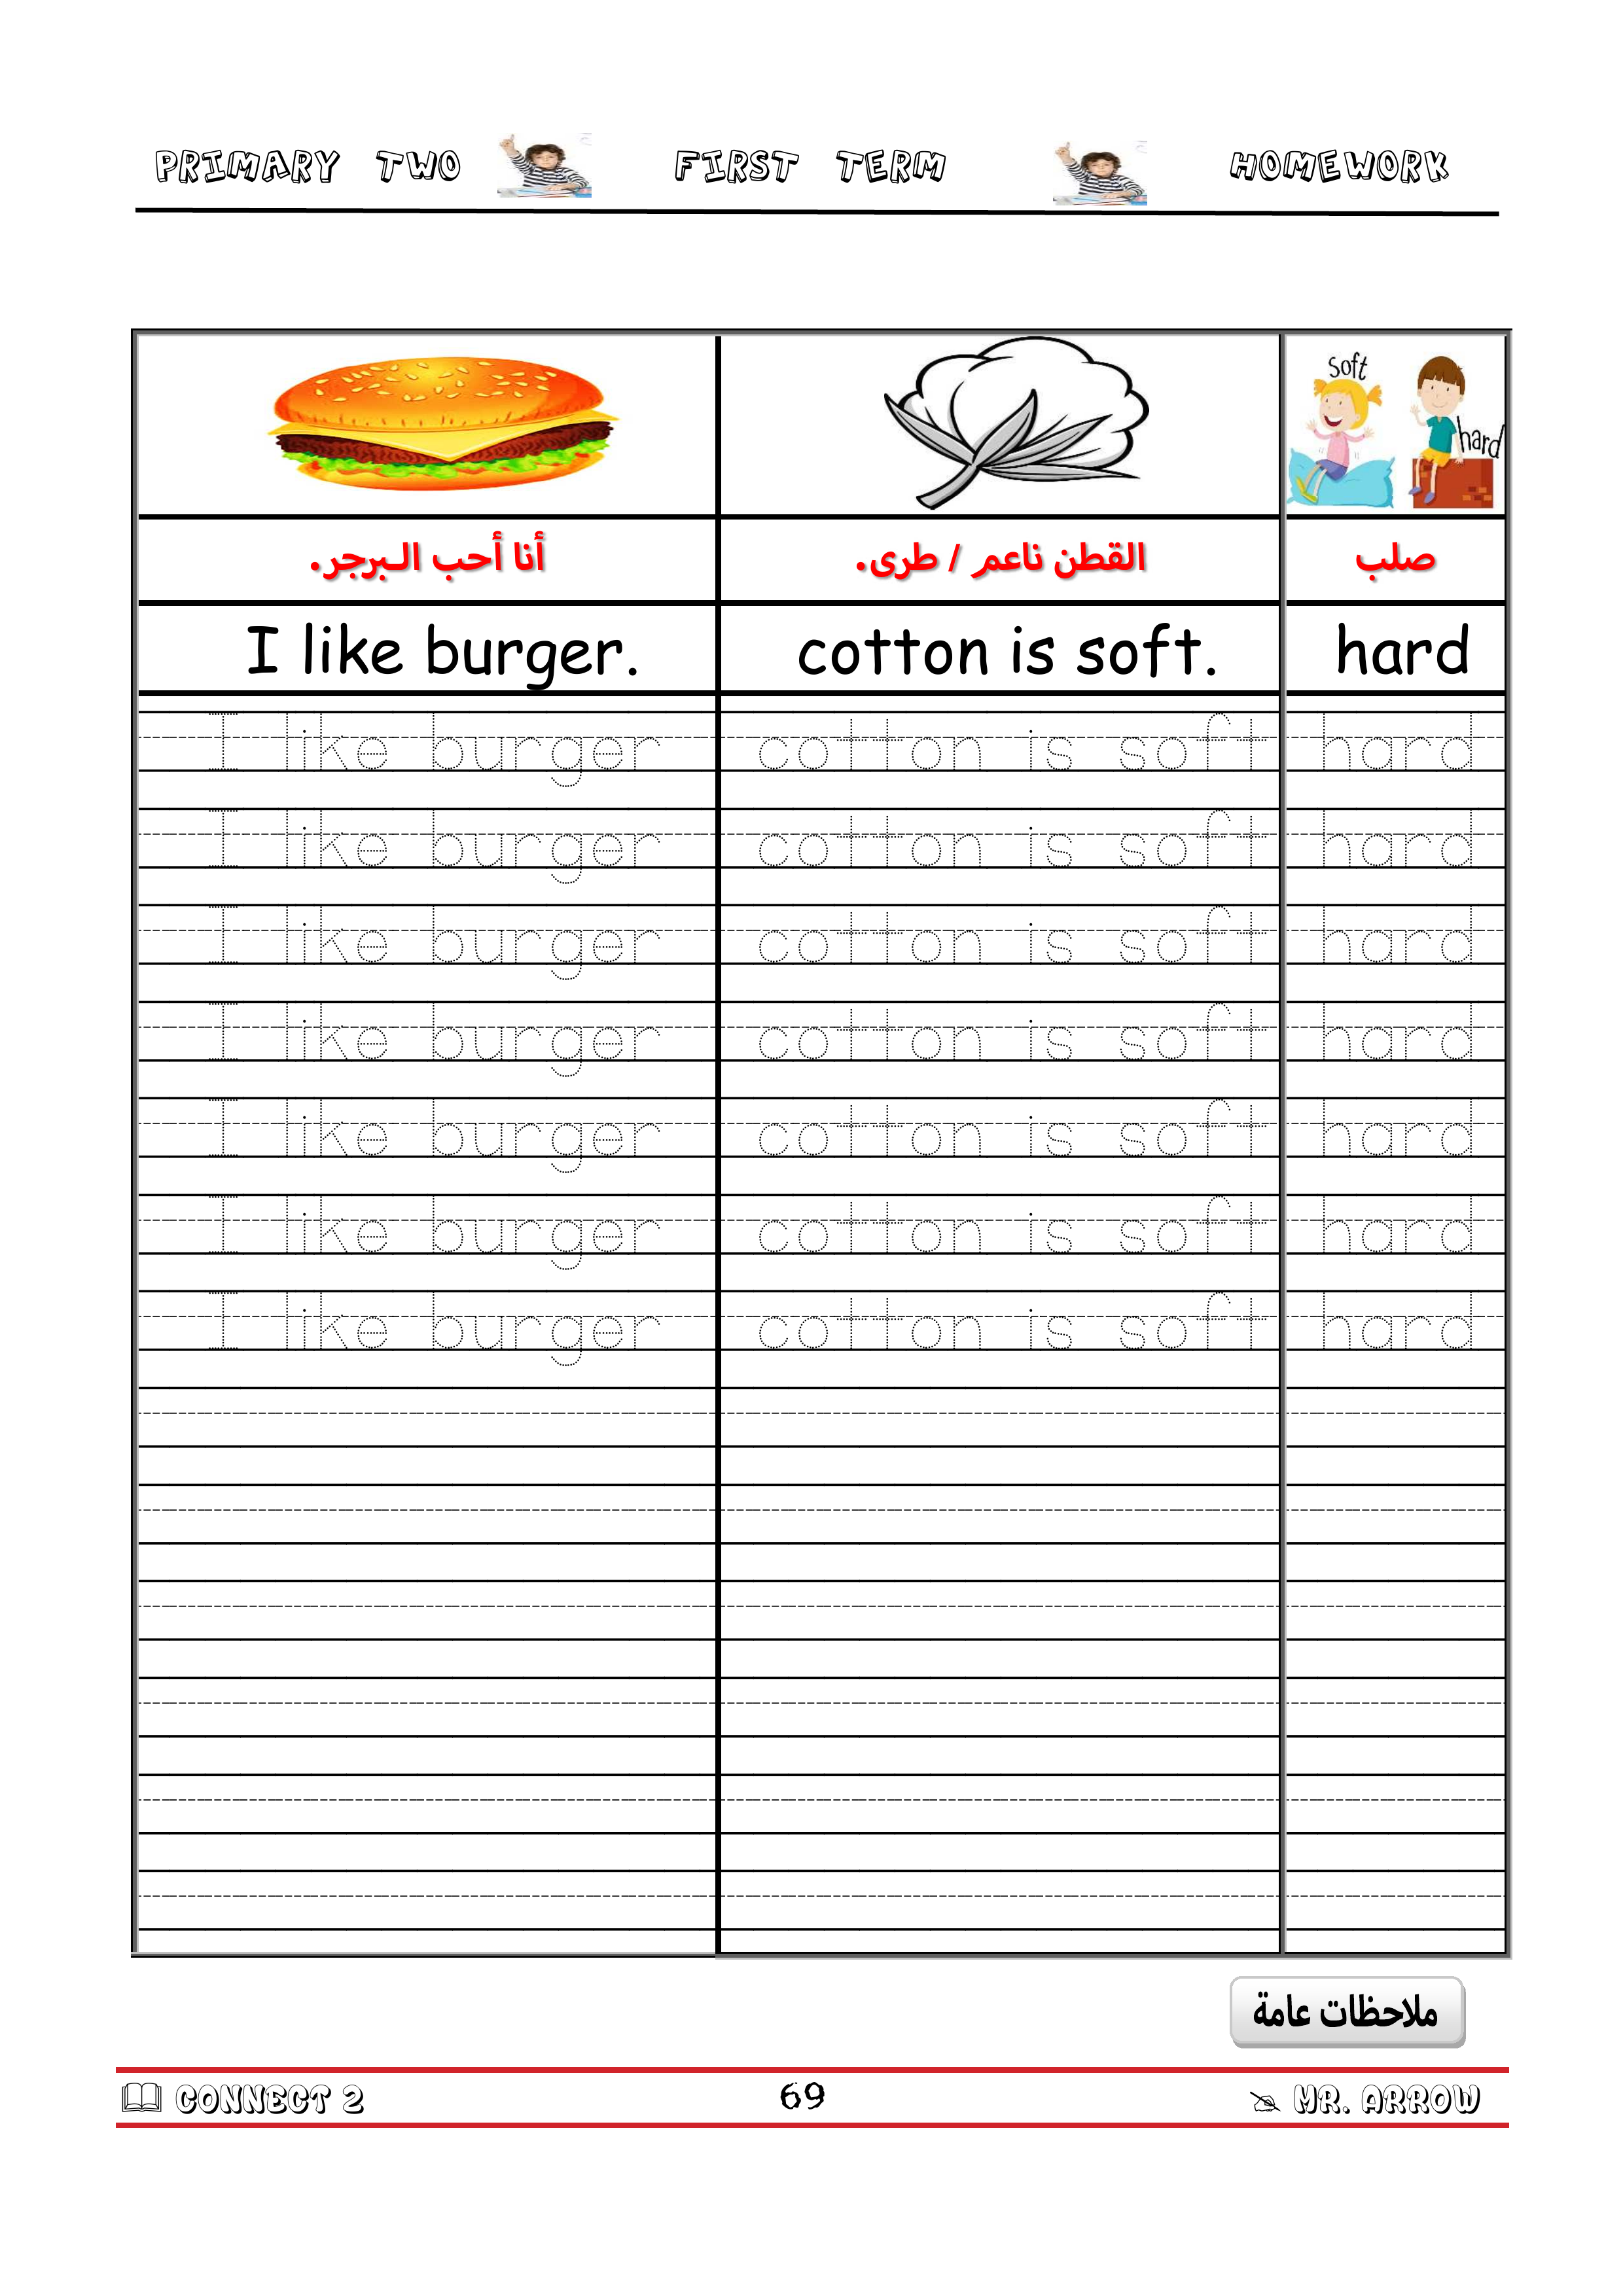 PRIMARY TWO FIRST TERM HOMEWORK
soft
hard
أنا أحب البرجر.
القطن ناعم / طرى.
صلب
I like burger.
cotton is soft.
hard
I like burger cotton is soft hard
I like burger cotton is soft hard
I like burger cotton is soft hard
I like burger cotton is soft hard
I like burger cotton is soft hard
I like burger cotton is soft hard
I like burger cotton is soft hard
ملاحظات عامة
CONNECT 2 69 MR. ARROW